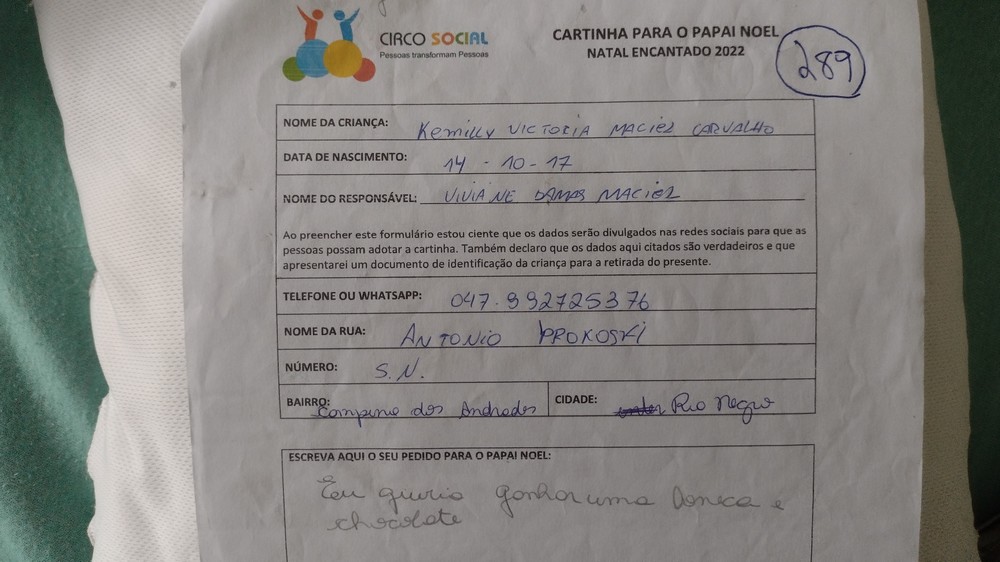 CIRCO SOCIAL
Pessoas transformam Pessoas
CARTINHA PARA O PAPAI NOEL
NATAL ENCANTADO 2022
289
NOME DA CRIANÇA: Kemilly VICTORIA MACIEL CARVALHO
DATA DE NASCIMENTO: 14 - 10 - 17
NOME DO RESPONSÁVEL: VIVIANE DAMAS MACIEL
Ao preencher este formulário estou ciente que os dados serão divulgados nas redes sociais para que as
pessoas possam adotar a cartinha. Também declaro que os dados aqui citados são verdadeiros e que
apresentarei um documento de identificação da criança para a retirada do presente.
TELEFONE OU WHATSAPP: 047.992725376
NOME DA RUA: ANTONIO PROKOSKI
NÚMERO: S.N.
BAIRRO: Campina dos Andrades CIDADE: Rio Negro
ESCREVA AQUI O SEU PEDIDO PARA O PAPAI NOEL:
Eu queria ganhar uma boneca e
chocolate